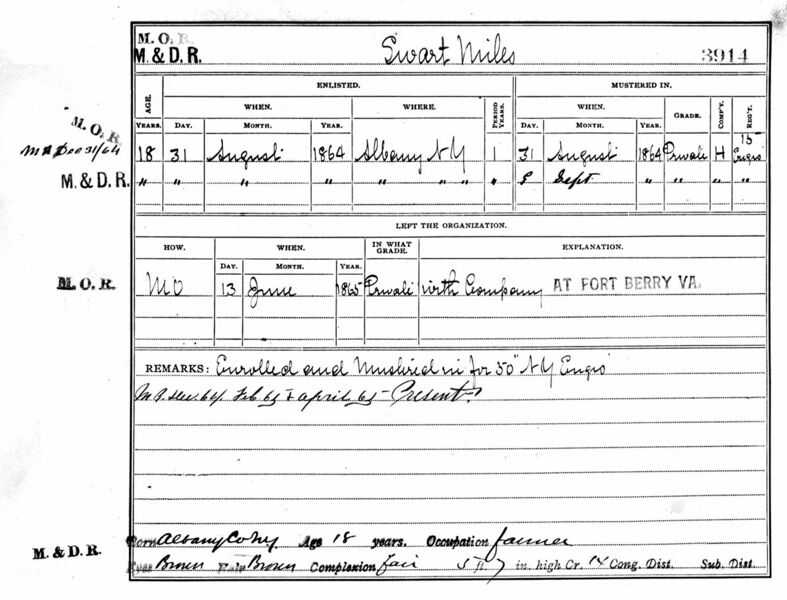 M. O. R.
M. & D. R.
Swart Miles
3914
ENLISTED.
MUSTERED IN.
AGE.
WHEN.
WHERE.
PERIOD YEARS.
WHEN.
GRADE.
COMP'Y.
REG'T.
YEARS.
DAY.
MONTH.
YEAR.
DAY.
MONTH.
YEAR.
M. O. R.
M R Dec 31/64
18 31 August 1864 Albany N Y 1 31 August 1864 Private H 15 Engrs
M. & D. R.
" " " " " " " " Sept " " " "
LEFT THE ORGANIZATION.
HOW.
WHEN.
IN WHAT GRADE.
EXPLANATION.
DAY.
MONTH.
YEAR.
M. O. R.
M O 13 June 1865 Private with Company AT FORT BERRY VA.
REMARKS: Enrolled and Mustered in for 50" N Y Engrs
M R Dec. 64. Feb 65 & April 65 - Present.
M. & D. R.
Born Albany Co NY Age 18 years. Occupation farmer
Eyes Brown Hair Brown Complexion fair 5 ft 7 in. high Cr. 14 Cong. Dist. Sub. Dist.